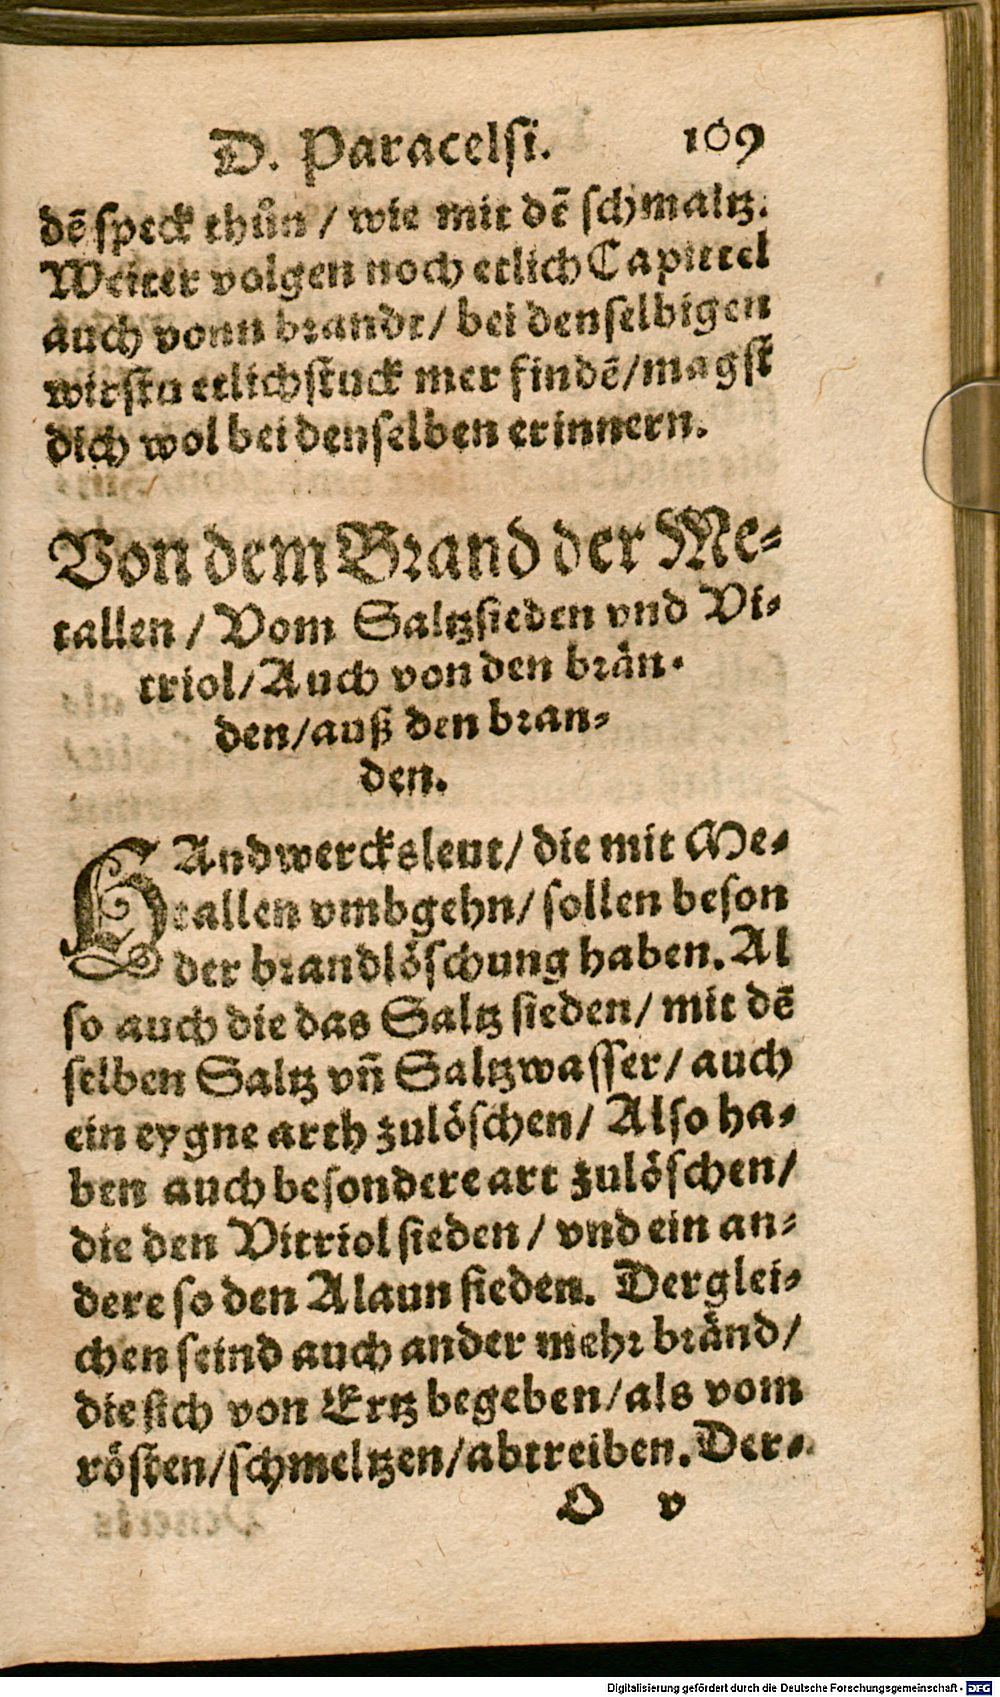 D. Paracelsi. 109
dē speck thůn / wie mit dē schmaltz.
Weiter volgen noch etlich Capittel
auch vonn brandt / bei denselbigen
wirstu etlich stuck mer findē / magst
dich wol bei denselben erinnern.
Von dem Brand der Me-
tallen / Vom Saltzsieden vnd Vi-
triol / Auch von den brän-
den / auß den bran-
den.
HAndwercksleut / die mit Me-
tallen vmbgehn / sollen beson
der brandlöschung haben. Al
so auch die das Saltz sieden / mit dē
selben Saltz vñ Saltzwasser / auch
ein eygne arth zulöschen / Also ha-
ben auch besondere art zulöschen /
die den Vitriol sieden / vnd ein an-
dere so den Alaun sieden. Derglei-
chen seind auch ander mehr bränd /
die sich von Ertz begeben / als vom
rösten / schmeltzen / abtreiben. Der-
O v
Digitalisierung gefördert durch die Deutsche Forschungsgemeinschaft - DFG